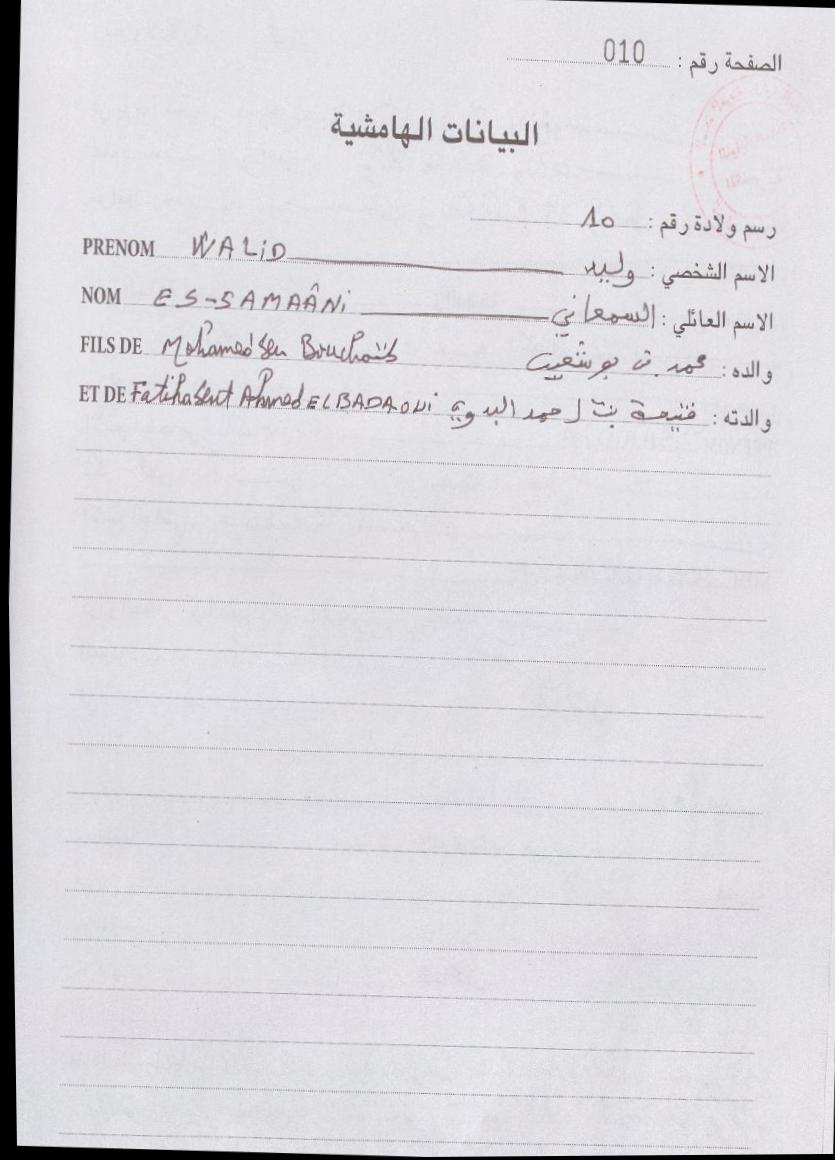 الصفحة رقم : 010
البيانات الهامشية
رسم ولادة رقم : 10
PRENOM WALiD وليد الاسم الشخصي :
NOM ES-SAMAÂNi السمعاني الاسم العائلي :
FILS DE Mohamed ben Bouchaïb محمد بن بوشعيب والده :
ET DE Fatiha bent Ahmed ELBADAOUi فتيحة بنت احمد البدوي والدته :